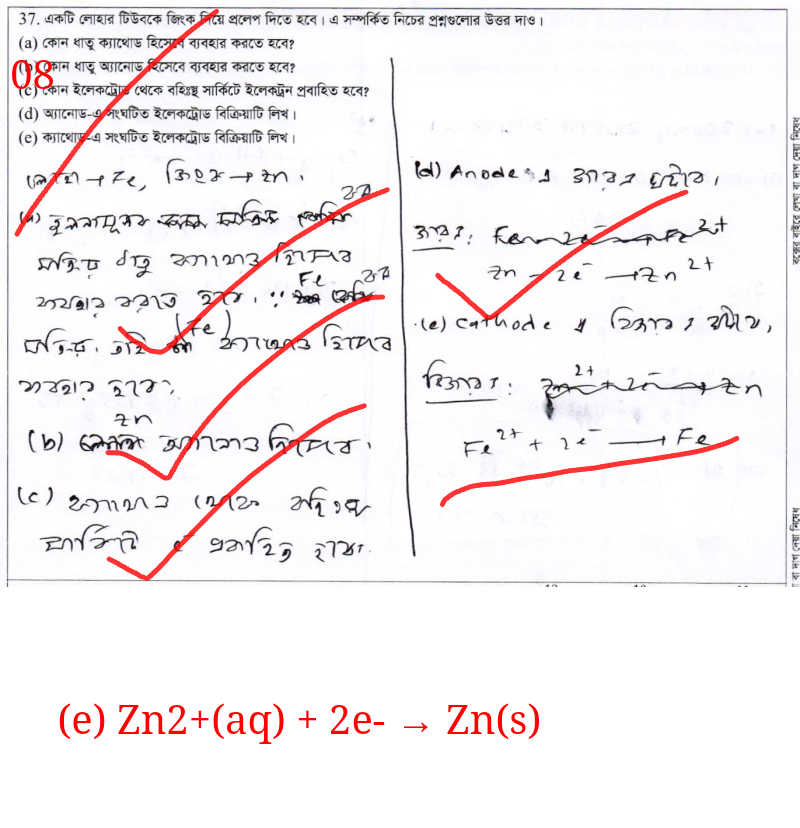 37. একটি লোহার টিউবকে জিংক দিয়ে প্রলেপ দিতে হবে। এ সম্পর্কিত নিচের প্রশ্নগুলোর উত্তর দাও।
(a) কোন ধাতু ক্যাথোড হিসেবে ব্যবহার করতে হবে?
08
(b) কোন ধাতু অ্যানোড হিসেবে ব্যবহার করতে হবে?
(c) কোন ইলেকট্রোড থেকে বহিঃস্থ সার্কিটে ইলেকট্রন প্রবাহিত হবে?
(d) অ্যানোড-এ সংঘটিত ইলেকট্রোড বিক্রিয়াটি লিখ।
(e) ক্যাথোড-এ সংঘটিত ইলেকট্রোড বিক্রিয়াটি লিখ।
লোহা → Fe, জিংক → Zn.
(a) তুলনামূলক কম
সক্রিয় ধাতু ক্যাথোড হিসেবে
ব্যবহার করতে হবে. ∵ Fe কম
সক্রিয়. তাই (Fe) ক্যাথোড হিসেবে
ব্যবহার হবে.
(b) Zn অ্যানোড হিসেবে.
(c) ক্যাথোড থেকে বহিঃস্থ
সার্কিটে e⁻ প্রবাহিত হবে.
(d) Anode এ জারণ ঘটবে.
জারণ:
Zn - 2e⁻ → Zn²⁺
(e) Cathode এ বিজারণ ঘটবে,
বিজারণ:
Fe²⁺ + 2e⁻ → Fe
(e) Zn2+(aq) + 2e- → Zn(s)